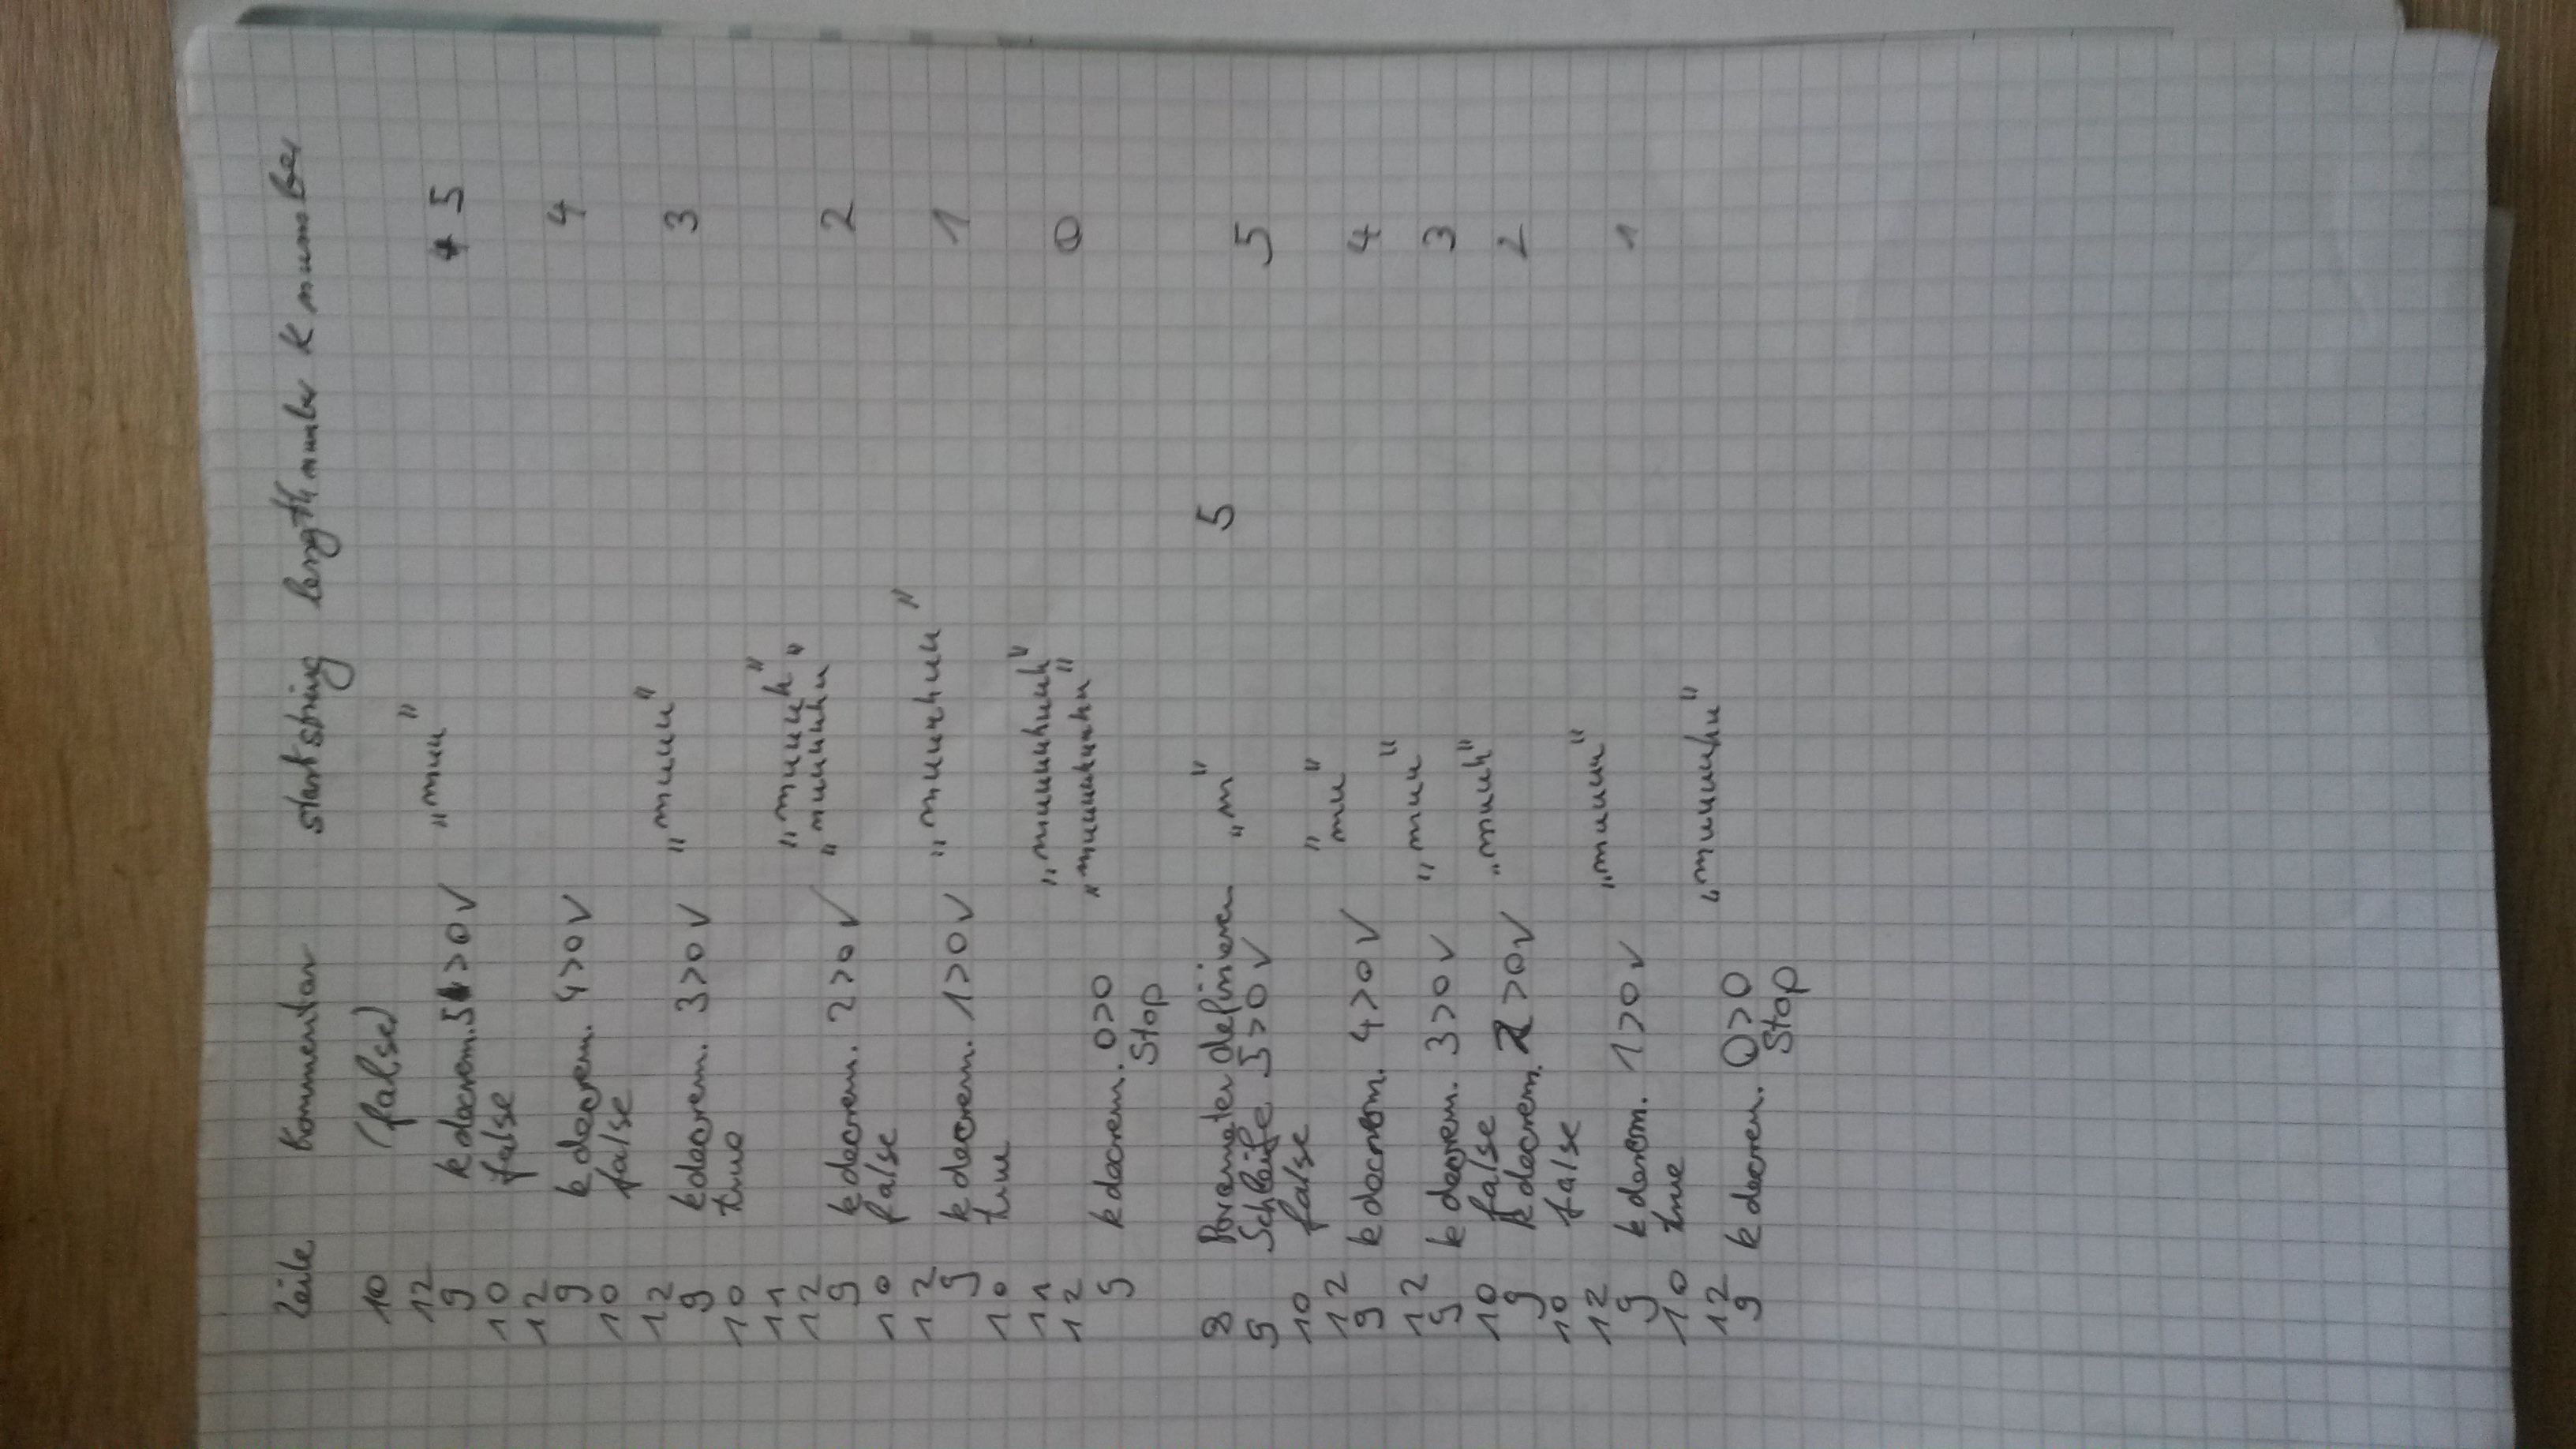 Zeile Kommentar start string length number k number
10 (false)
12 „muu"
9 k decrem. 5 >0 ✓ 5
10 false
12
9 k decrem. 4>0 ✓ 4
10 false
12 „muuu"
9 k decrem. 3>0 ✓ 3
10 true
11 „muuuh"
12
9 k decrem. 2>0 ✓ 2
10 false
12
9 k decrem. 1>0 ✓ 1
10 true
11
12
9 k decrem. 0>0 0
Stop
8 Parameter definieren „m" 5
9 Schleife 5>0 ✓ 5
10 false
12 "mu"
9 k decrem. 4>0 ✓ 4
12 „muu"
9 k decrem. 3>0 ✓ 3
10 false „muuh"
9 k decrem. 2>0 ✓ 2
10 false
12 „muuuu"
9 k derem. 1>0 ✓ 1
10 true
12 „muuuuhu"
9 k decrem. 0>0
Stop